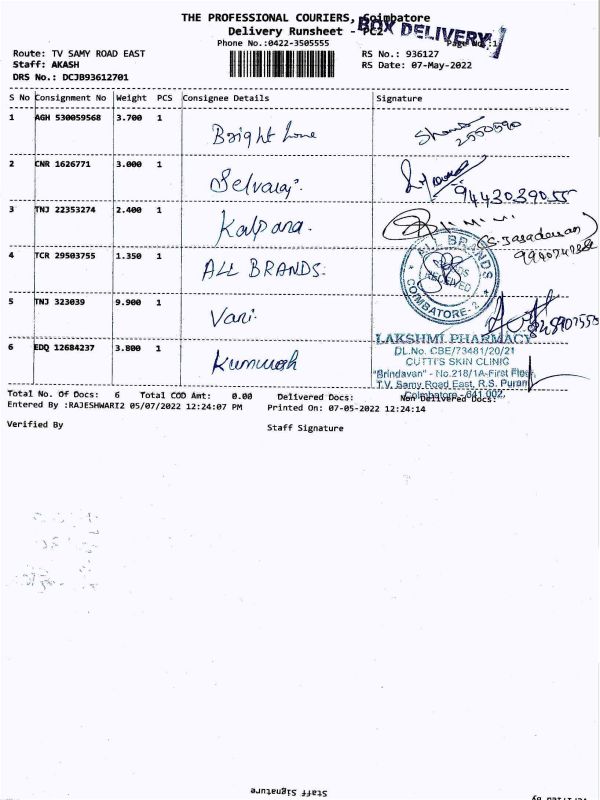 THE PROFESSIONAL COURIERS, Coimbatore
Delivery Runsheet - PC2
BOX DELIVERY
Phone No.:0422-3505555
Page No.:1
Route: TV SAMY ROAD EAST
RS No.: 936127
Staff: AKASH
RS Date: 07-May-2022
DRS No.: DCJB93612701
S No Consignment No Weight PCS Consignee Details Signature
1 AGH 530059568 3.700 1 Bright Line
2 CNR 1626771 3.000 1 Selvaraj. 9443039055
3 TNJ 22353274 2.400 1 Kalpana.
4 TCR 29503755 1.350 1 ALL BRANDS.
ALL BRANDS
RECEIVED
COIMBATORE-2
5 TNJ 323039 9.900 1 Vani.
6 EDQ 12684237 3.800 1
LAKSHMI PHARMACY
DL.No. CBE/73481/20/21
CUTTI'S SKIN CLINIC
"Brindavan" - No.218/1A-First Floor,
T.V. Samy Road East, R.S. Puram
Coimbatore - 641 002.
Total No. Of Docs: 6 Total COD Amt: 0.00 Delivered Docs: Non Delivered Docs:
Entered By :RAJESHWARI2 05/07/2022 12:24:07 PM Printed On: 07-05-2022 12:24:14
Verified By Staff Signature
Staff Signature